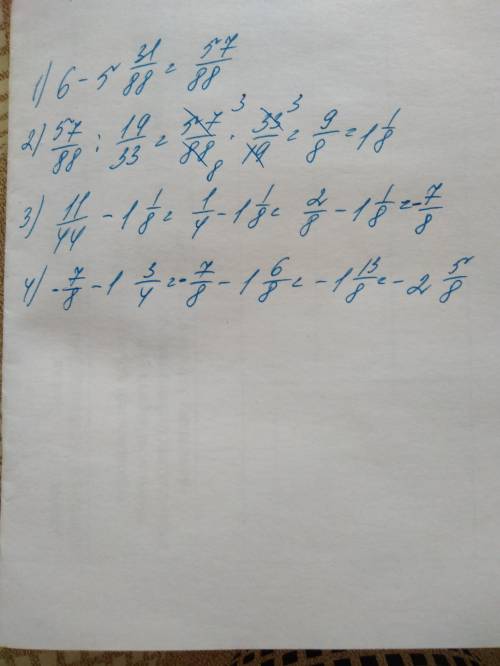 1) 6 - 5 31/88 = 57/88
2) 57/88 : 19/33 = 57/88 · 33/19 = 9/8 = 1 1/8
3) 11/44 - 1 1/8 = 1/4 - 1 1/8 = 2/8 - 1 1/8 = -7/8
4) -7/8 - 1 3/4 = -7/8 - 1 6/8 = -1 13/8 = -2 5/8